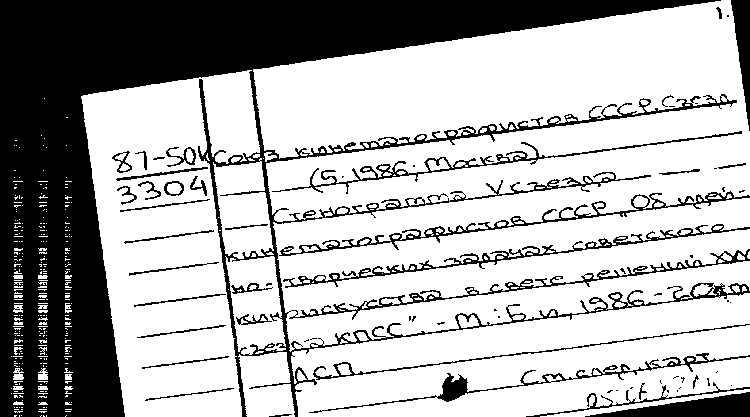 1.
87-50К Союз кинематографистов СССР. Съезд
3304 (5; 1986; Москва).
Стенограмма V съезда
кинематографистов СССР „Об идей-
но-творческих задачах советского
киноискусства в свете решений XXVII
съезда КПСС". - М.: Б.и., 1986. - 2
ДСП.
См. след. карт.